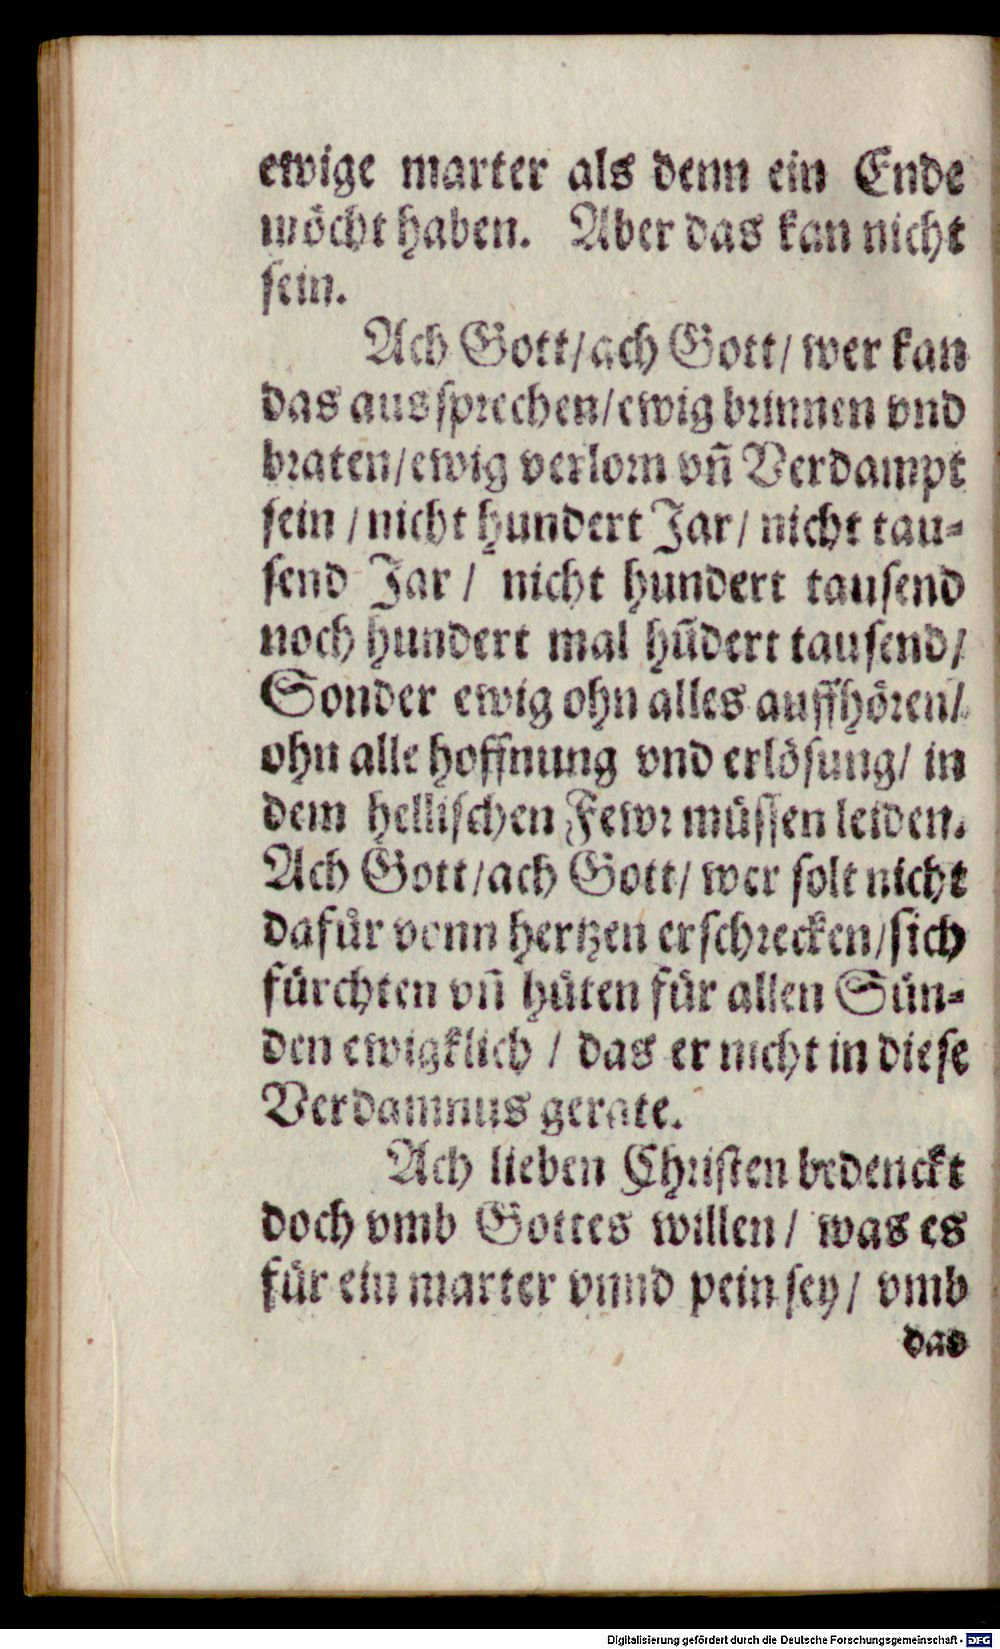 ewige marter als denn ein Ende
möcht haben. Aber das kan nicht
sein.
Ach Gott/ach Gott/ wer kan
das aussprechen/ewig brinnen vnd
braten/ewig verlorn vñ Verdampt
sein / nicht hundert Jar/ nicht tau-
send Jar / nicht hundert tausend
noch hundert mal hũdert tausend/
Sonder ewig ohn alles auffhören/
ohn alle hoffnung vnd erlösung/ in
dem hellischen Fewr müssen leiden.
Ach Gott/ach Gott/ wer solt nicht
dafür vonn hertzen erschrecken/sich
fürchten vñ hüten für allen Sün-
den ewigklich / das er nicht in diese
Verdamnus gerate.
Ach lieben Christen bedenckt
doch vmb Gottes willen/ was es
für ein marter vnnd pein sey/ vmb
das
Digitalisierung gefördert durch die Deutsche Forschungsgemeinschaft - DFG